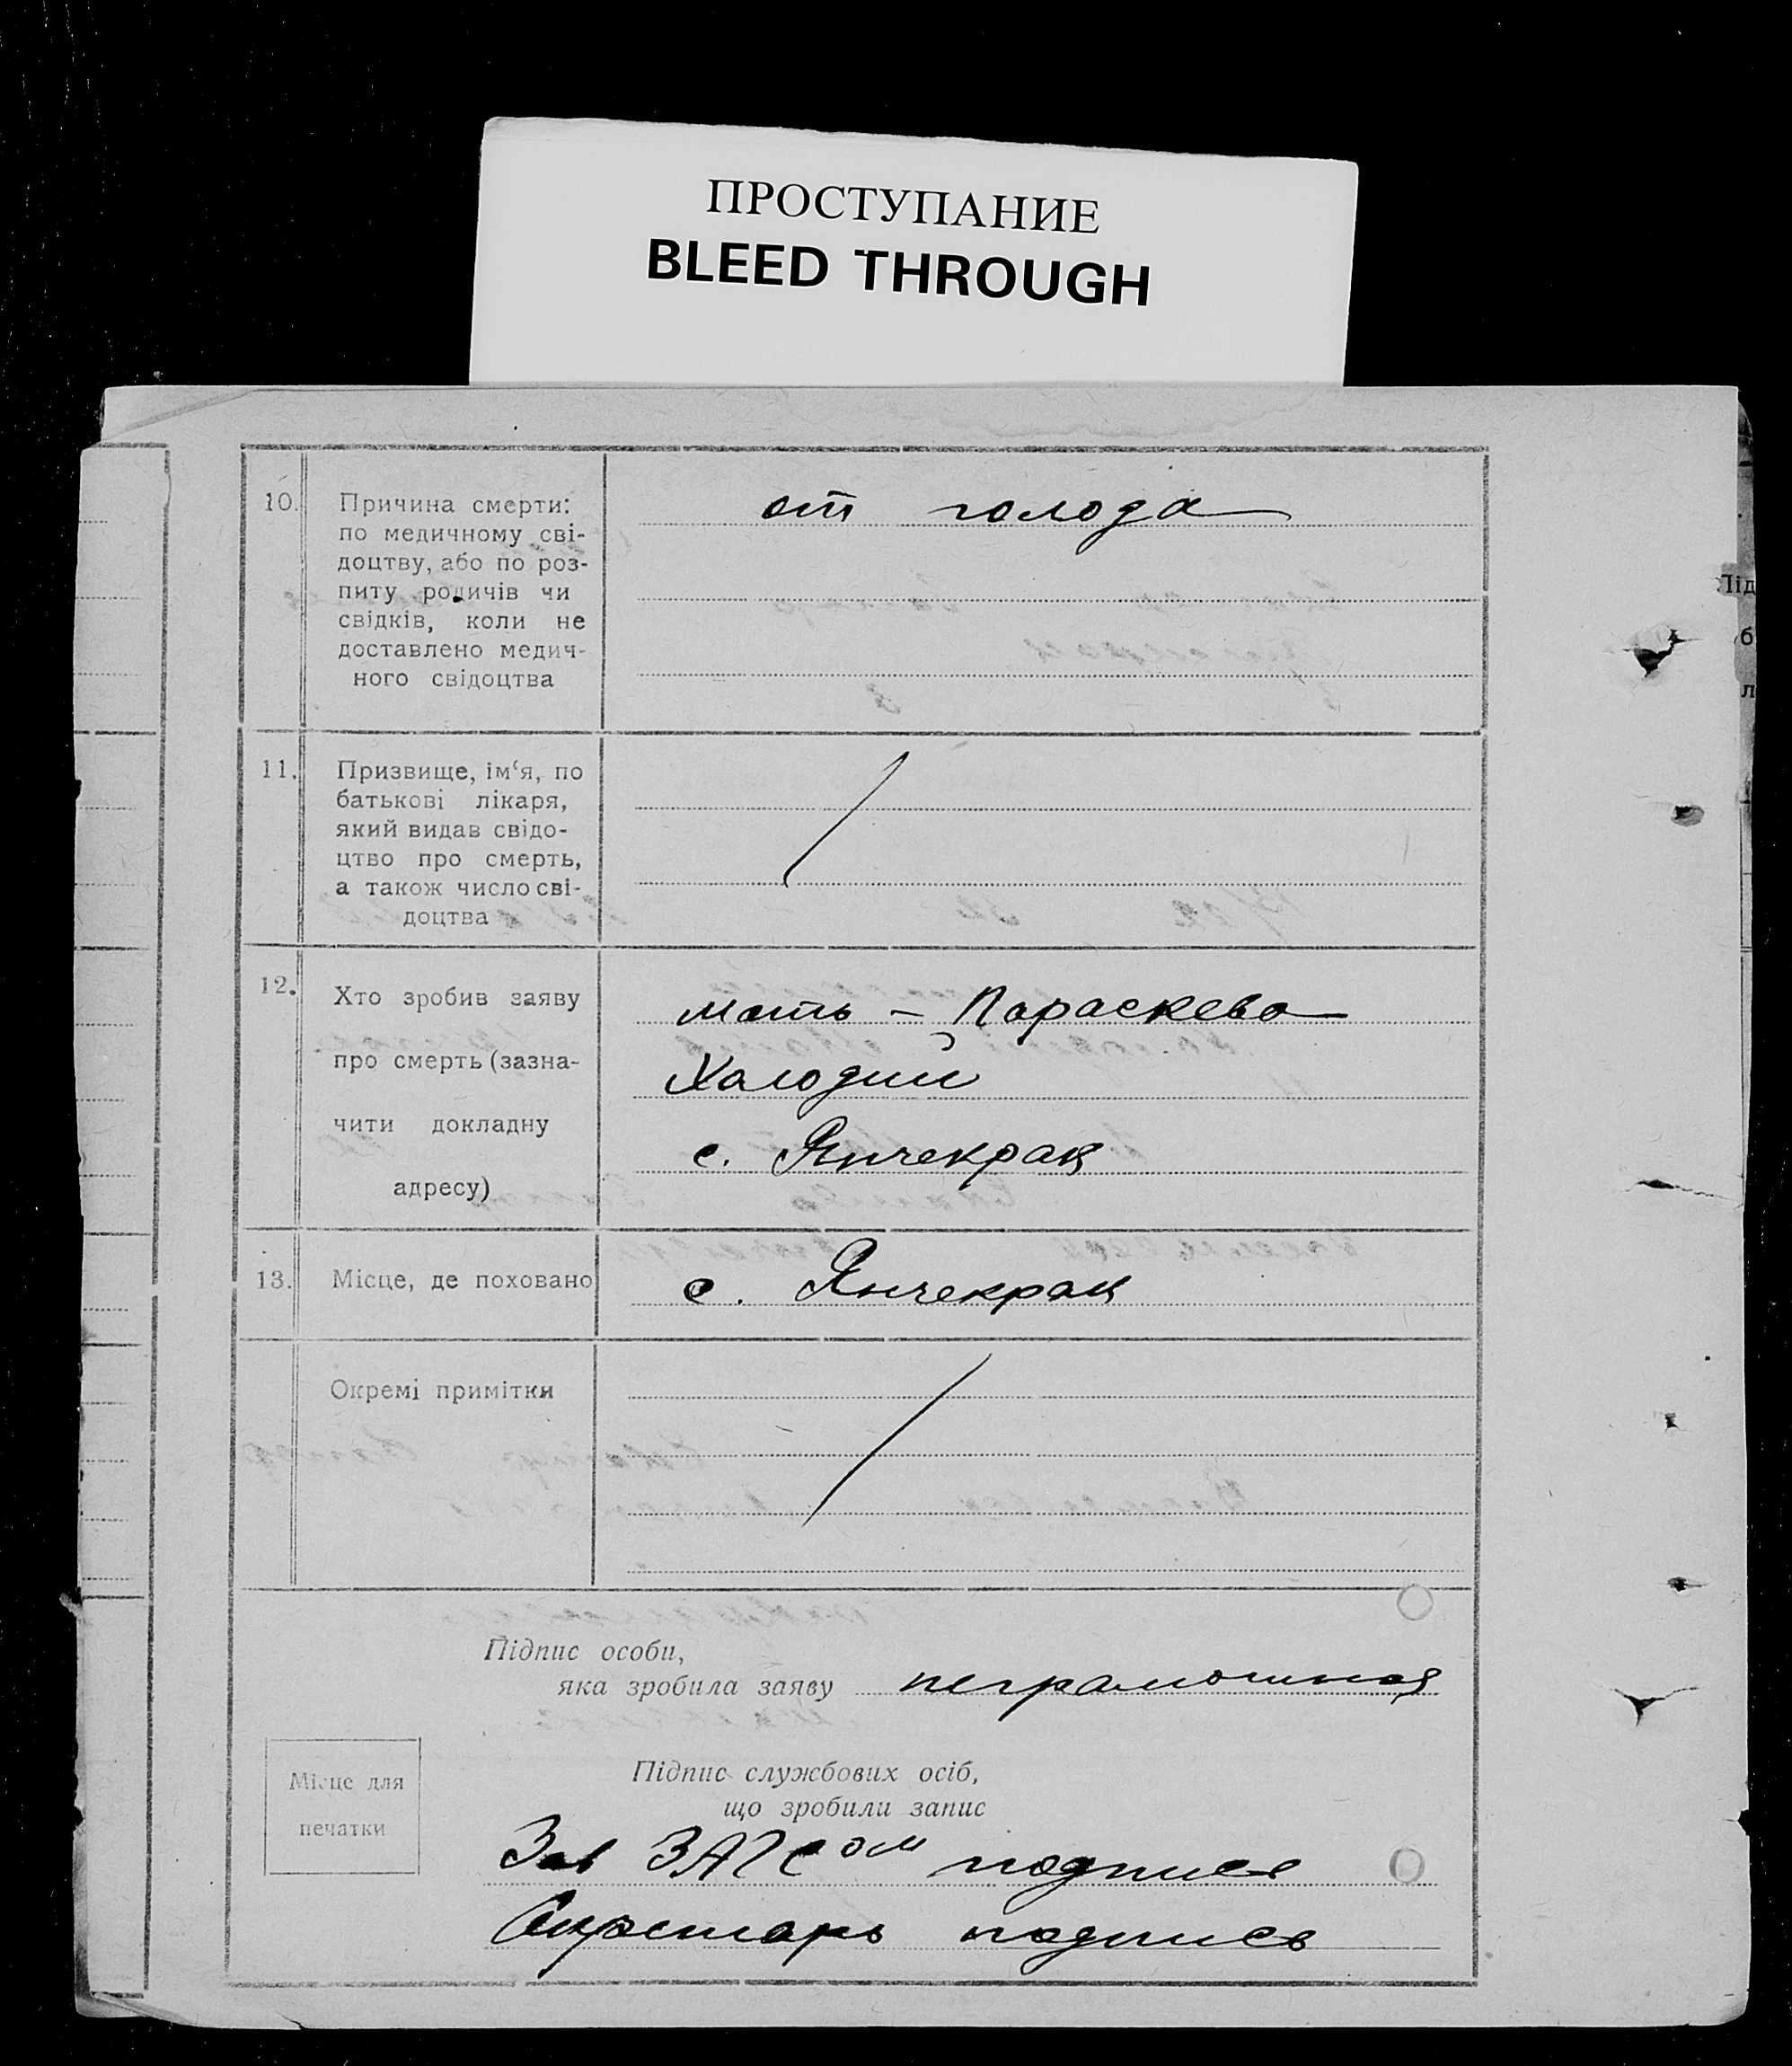 ПРОСТУПАНИЕ
BLEED THROUGH
10. Причина смерти:
по медичному сві-
доцтву, або по роз-
питу родичів чи
свідків, коли не
доставлено медич-
ного свідоцтва
от голода
11. Призвище, ім‘я, по
батькові лікаря,
який видав свідо-
цтво про смерть,
а також число сві-
доцтва
12. Хто зробив заяву
про смерть (зазна-
чити докладну
адресу)
мать – Параскева
Холодий
с. Янчекрак
13. Місце, де поховано
с. Янчекрак
Окремі примітки
Підпис особи,
яка зробила заяву неграмотная
Місце для
печатки
Підпис службових осіб,
що зробили запис
Зав ЗАГСом подпись
Секретарь подпись
Під
б
л